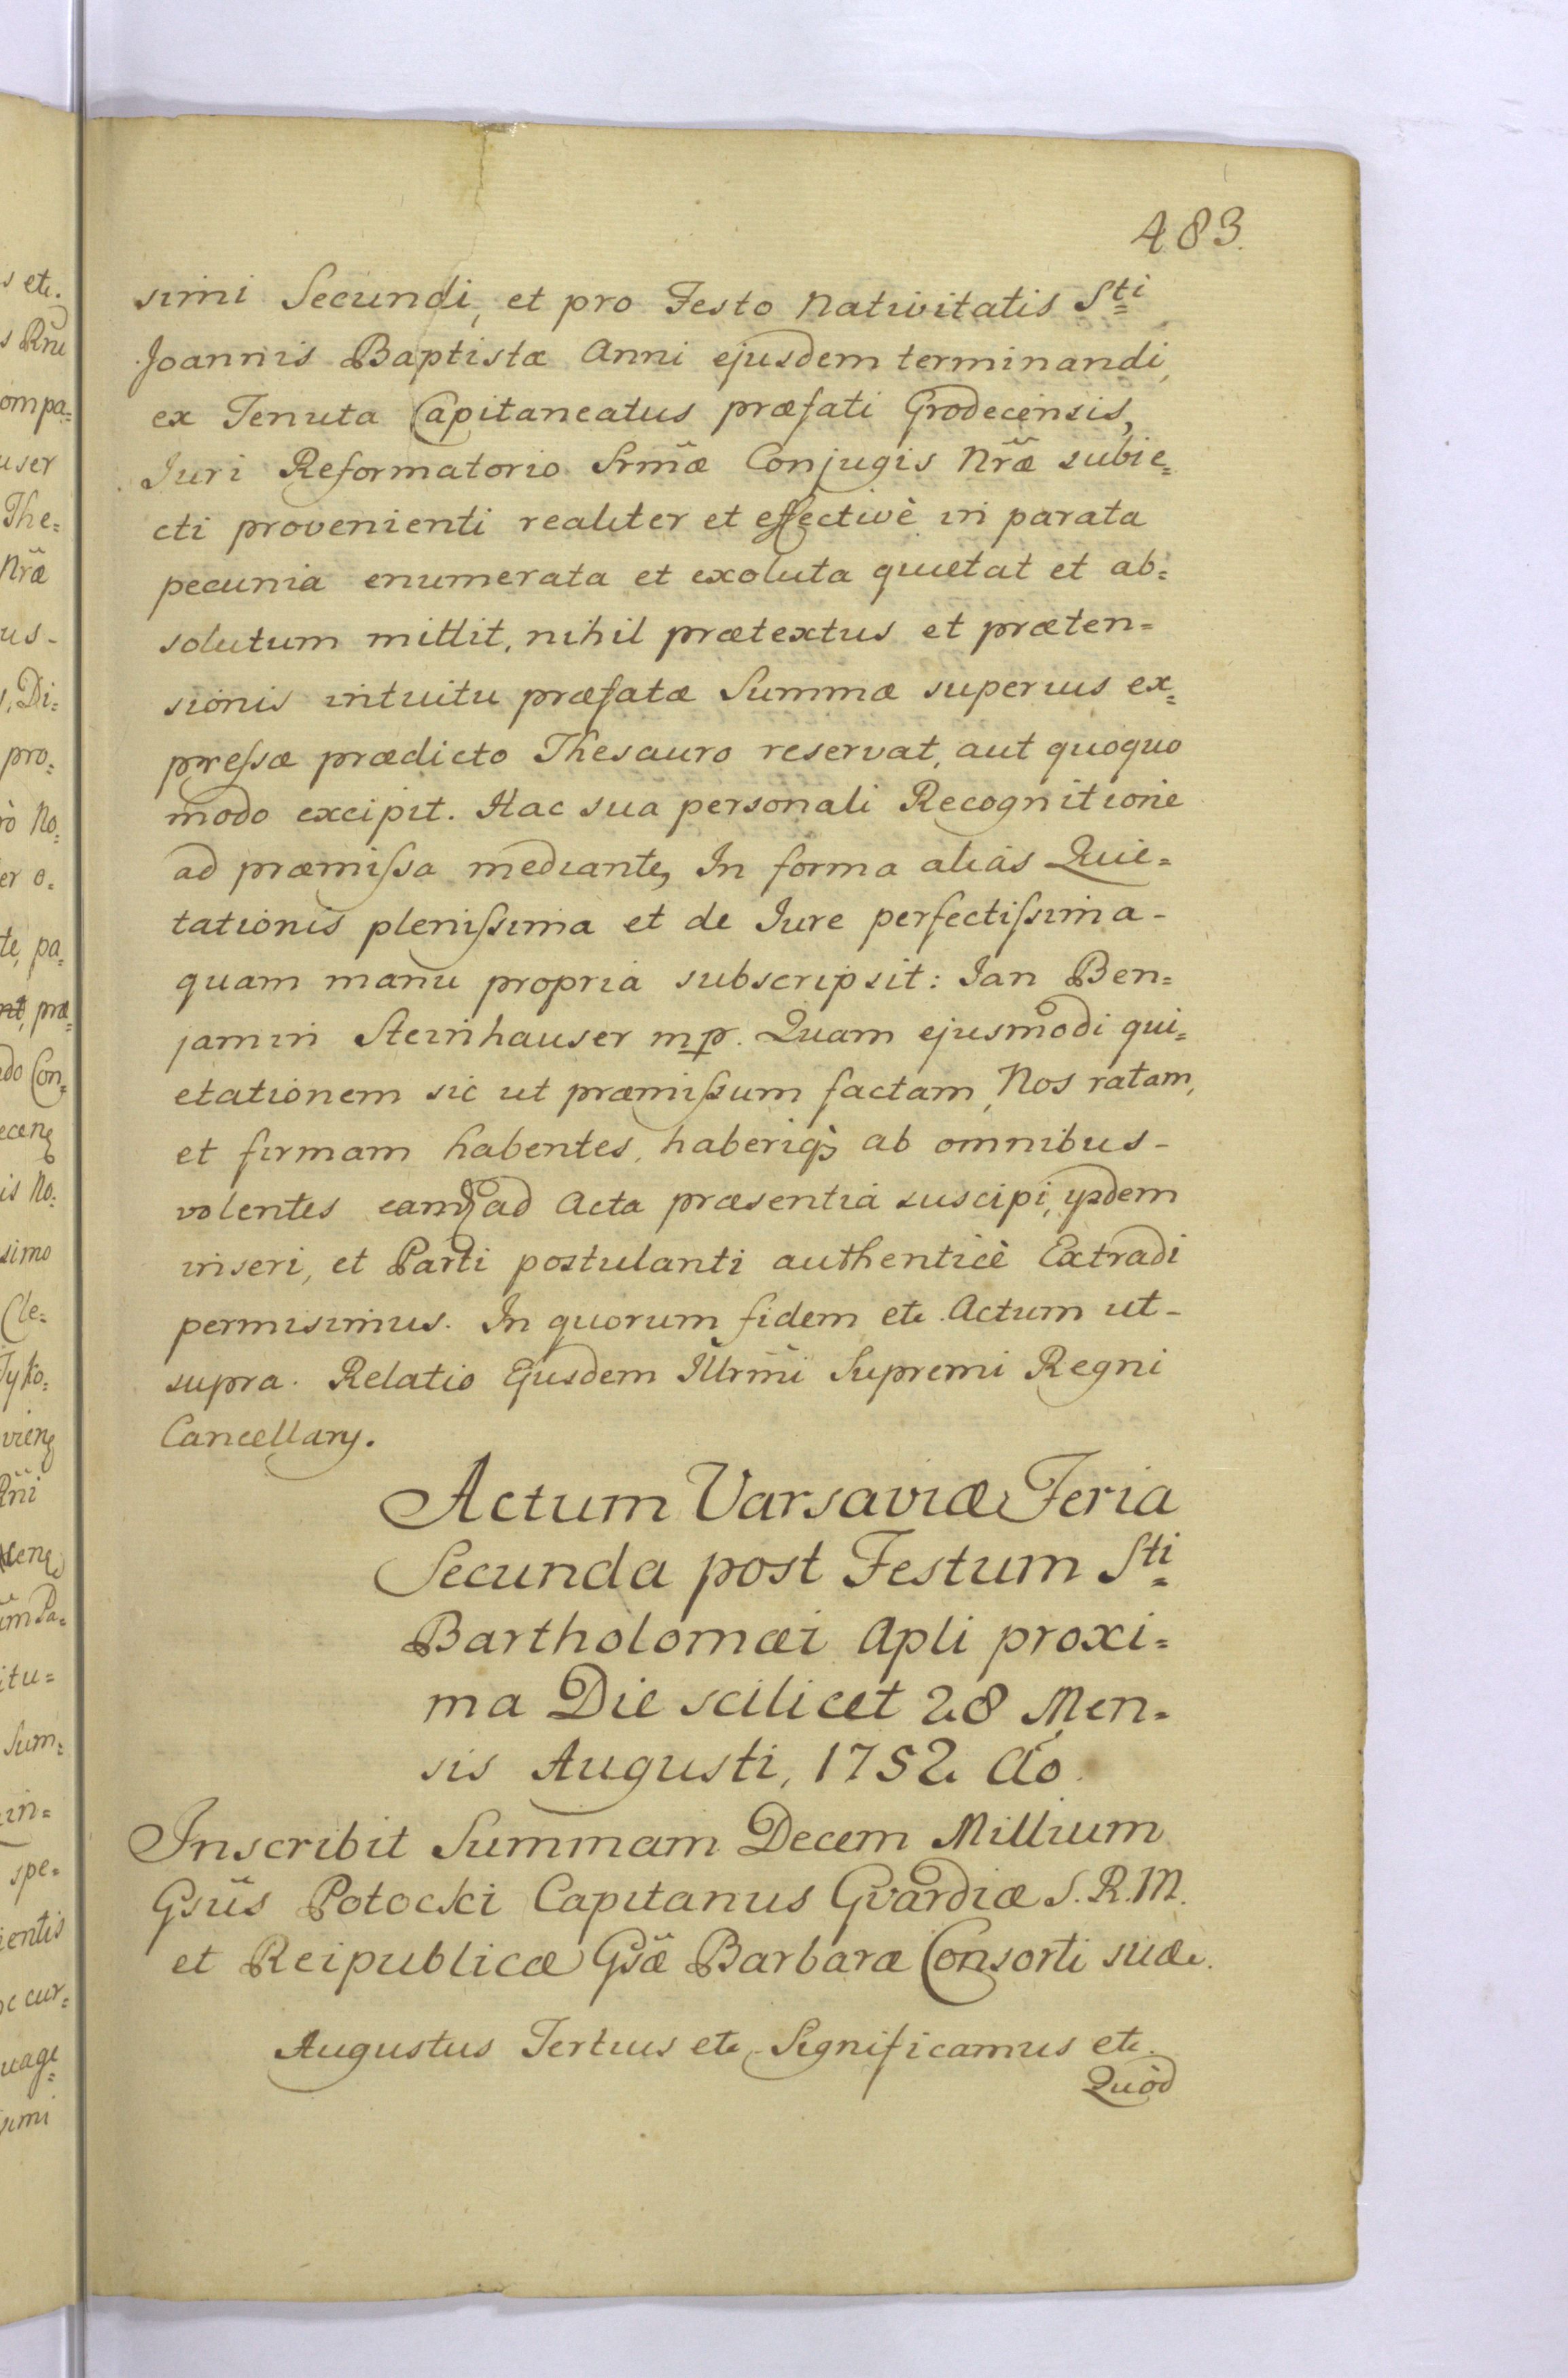 483.
simi Secundi, et pro Festo Nativitatis Sti
Joannis Baptistæ Anni ejusdem terminandi,
ex Tenuta Capitaneatus præfati Grodecensis,
Iuri Reformatorio Srm̃æ Conjugis Nr̃æ subie=
cti provenienti realiter et effectivè in parata
pecunia enumerata et exoluta quietat et ab=
solutum mittit, nihil prætextus et præten=
sionis intuitu præfatæ Summæ superius ex=
pressæ prædicto Thesauro reservat, aut quoquo
modo excipit. Hac sua personali Recognitione
ad præmissa mediante, In forma aliàs Quie=
tationis plenissima et de Iure perfectissima-
quam manu propria subscripsit: Ian Ben=
jamin Steinhauser mp. Quam ejusmodi qui=
etationem sic ut præmissum factam, Nos ratam,
et firmam habentes, haberiq; ab omnibus-
volentes eamq; ad Acta præsentia suscipi, ysdem
inseri, et Parti postulanti authenticè Extradi
permisimus. In quorum fidem etc. Actum ut-
supra. Relatio Ejusdem Illrm̃i Supremi Regni
Cancellarij.
Actum Varsaviæ Feria
Secunda post Festum Sti
Bartholomæi Apli proxi=
ma Die scilicet 28 Men=
sis Augusti, 1752 Ao.
Inscribit Summam Decem Millium
Gsũs Potocki Capitanus Gvardiæ S.R.M.
et Reipublicæ Gsæ̃ Barbaræ Consorti suæ.
Augustus Tertius etc. Significamus etc.
Quòd
s etc.
s Rñi
ompa=
user
The=
Nr̃æ
us-
s, Di=
pro=
rò No=
er o=
te, pa=
nt, præ=
do Con=
is No=
simo
Cle=
Tyko=
itu=
Sum=
in=
spe=
ientis
c cur=
uage=
simi